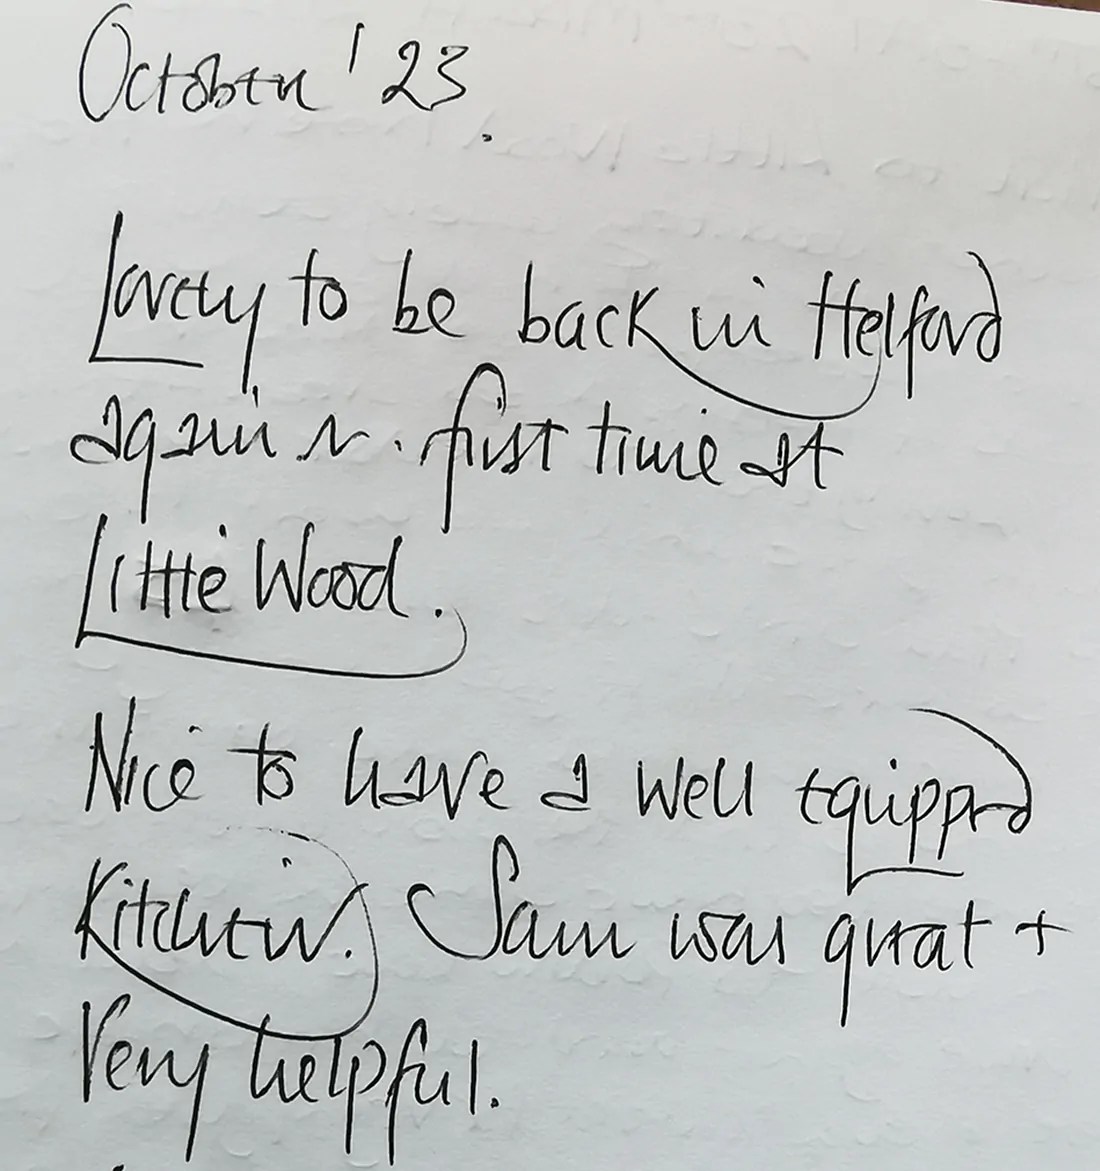 October '23.
Lovely to be back in Helford
again ~. first time at
Little Wood.
Nice to have a well equipped
Kitchen. Sam was great +
Very helpful.